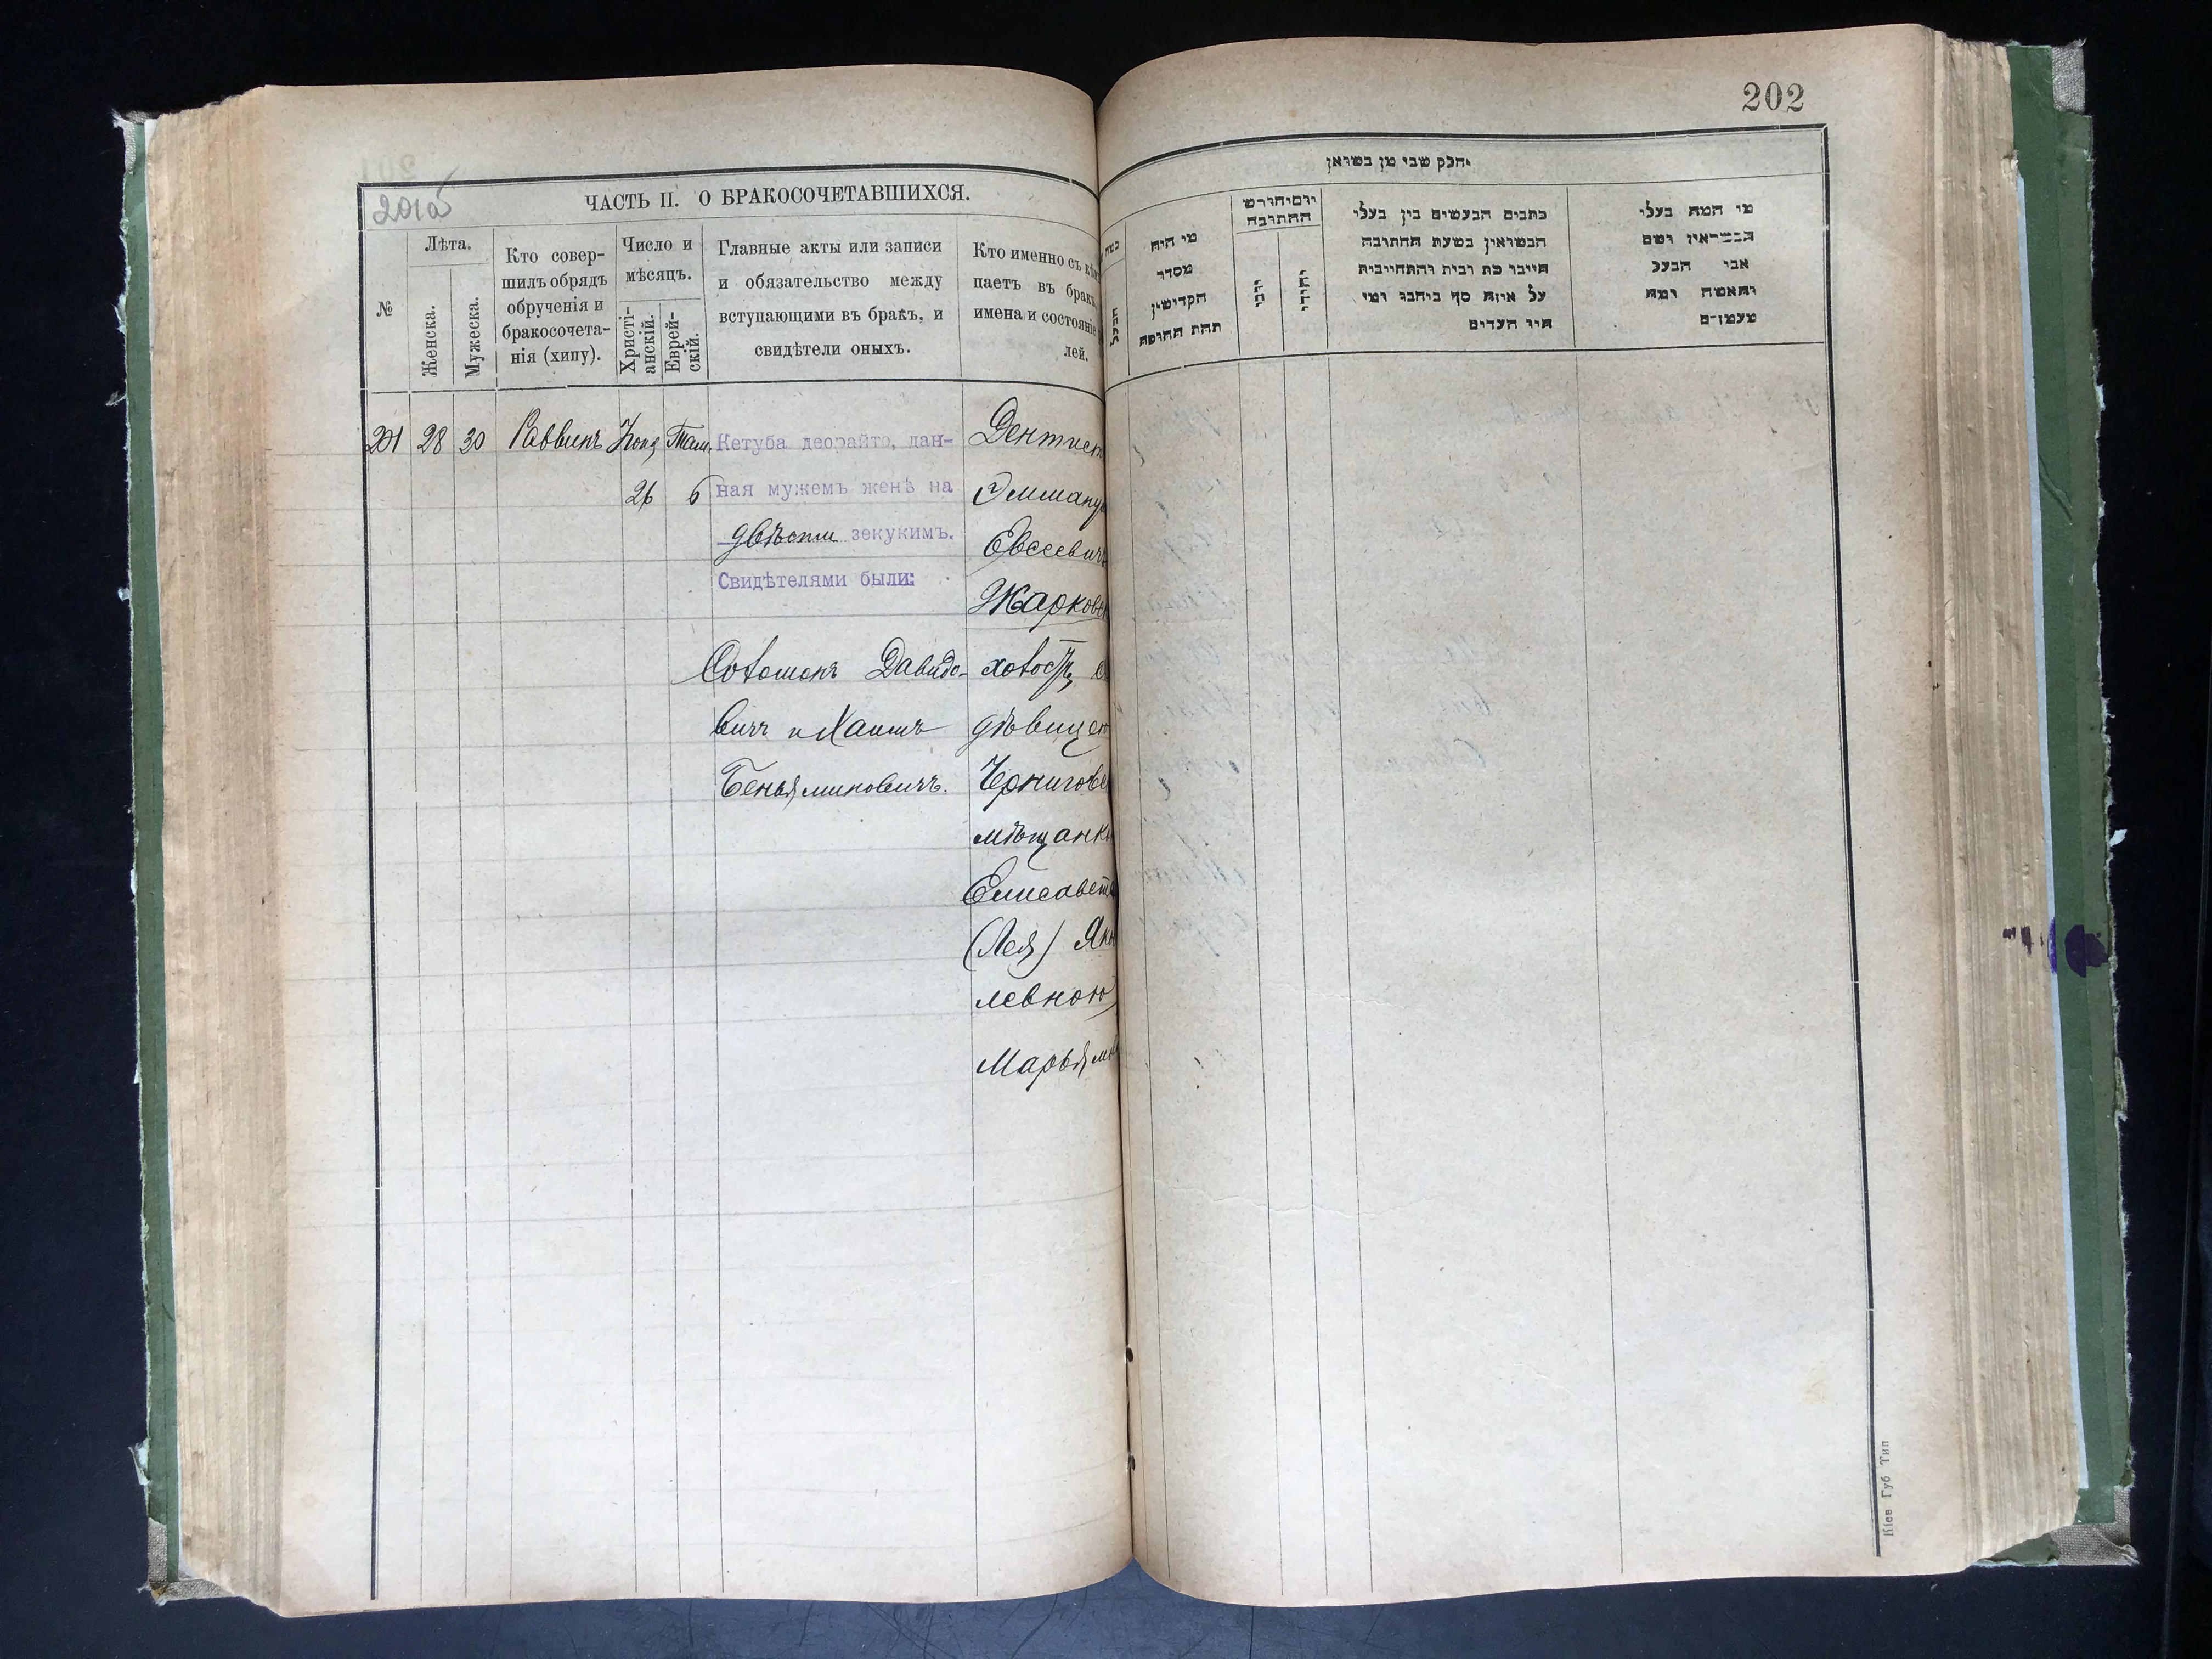 202
201 об
ЧАСТЬ II. О БРАКОСОЧЕТАВШИХСЯ.
№
Лѣта.
Женска.
Мужеска.
Кто совер-
шилъ обрядъ
обрученія и
бракосочета-
нія (хипу).
Число и
мѣсяцъ.
Христі-
анскій.
Еврей-
скій.
Главные акты или записи
и обязательство между
вступающими въ бракъ, и
свидѣтели оныхъ.
Кто именно съ кѣм
паетъ въ бракъ
имена и состояніе
лей.
201 28 30 Раввинъ
26 6
Кетуба деорайто, дан-
ная мужемъ женѣ на
двѣсти зекукимъ.
Свидѣтелями были:
Соломонъ Давидо-
вичъ и Хаимъ
Беньяминовичъ.
Дентист
Эммануи
Евсеевичъ
Жарковск
холостъ, с
дѣвицею
Черниговск
мѣщанкою
Елисавет
(Лея) Яко
левною
Марьямо
חלק שני מן נשואן
כמה
הבעל
מי היה
מסדר
הקדושין
תחת החופה
יום וחודש
החתונה
יוני
יהודי
כתבים הנעשים בין בעלי
הנשואין בשעת החתונה
על איזה סך ביחבו ומי
היו העדים
מי המה בעלי
הנשואין ושם
אבי הבעל
והאשה ומה
מעמדם
Кіев Губ Тип